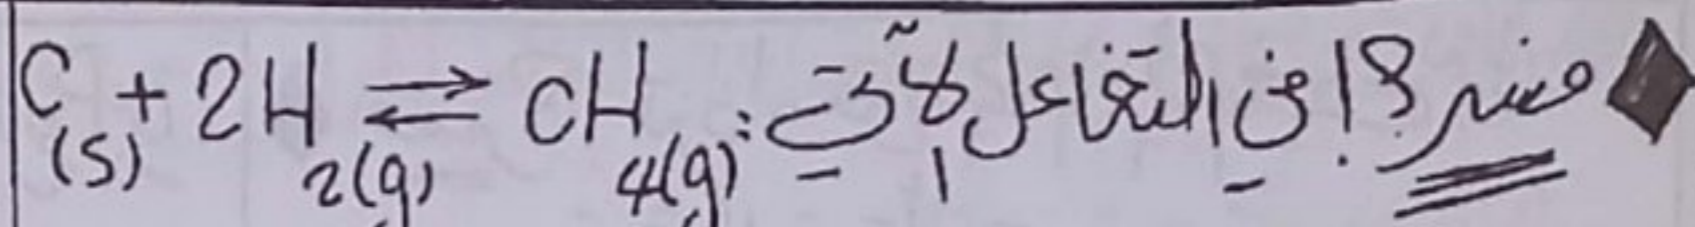 فسر ؟! في التفاعل الآتي: C(s) + 2H2(g) ⇌ CH4(g)